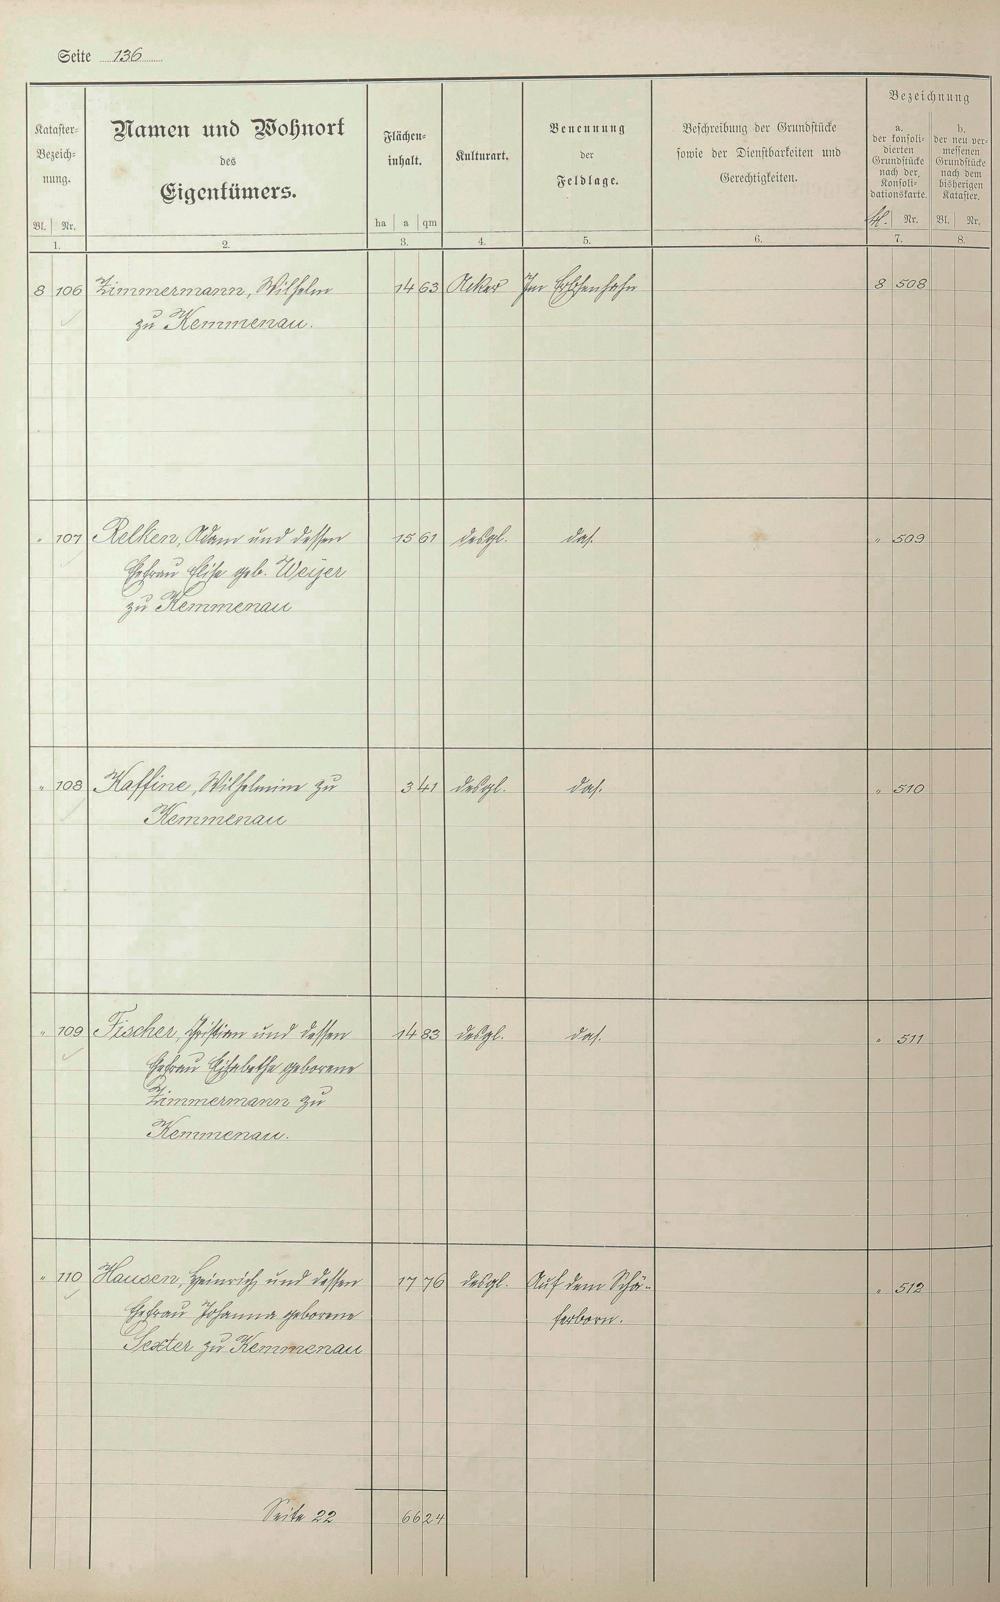 Seite 136
Kataster-Bezeich-nung.
Namen und Wohnort
des
Eigentümers.
Flächen-inhalt.
Kulturart.
Benennung
der
Feldlage.
Beschreibung der Grundstücke
sowie der Dienstbarkeiten und
Gerechtigkeiten.
Bezeichnung
a. der konsoli-dierten Grundstücke nach der Konsoli-dationskarte.
b. der neu ver-messenen Grundstücke nach dem bisherigen Kataster.
Bl. Nr. ha a qm Bl. Nr. Bl. Nr.
1. 2. 3. 4. 5. 6. 7. 8.
8 106 Zimmermann, Wilhelm 14 63 Acker Im 8 508
zu Kemmenau.
" 107 Relken, Adam und dessen 15 61 desgl. das. " 509
Ehefrau Elise geb. Weyer
zu Kemmenau
" 108 Kaffine, Wilhelmine zu 3 41 desgl. das. " 510
Kemmenau
" 109 Fischer, Christian und dessen 14 83 desgl. das. " 511
Ehefrau Elisabethe geborene
Zimmermann zu
Kemmenau.
" 110 Hausen, Heinrich und dessen 17 76 desgl. Auf dem Schä- " 512
Ehefrau Johanna geborene ferborn.
Sexter zu Kemmenau
Seite 22 66 24